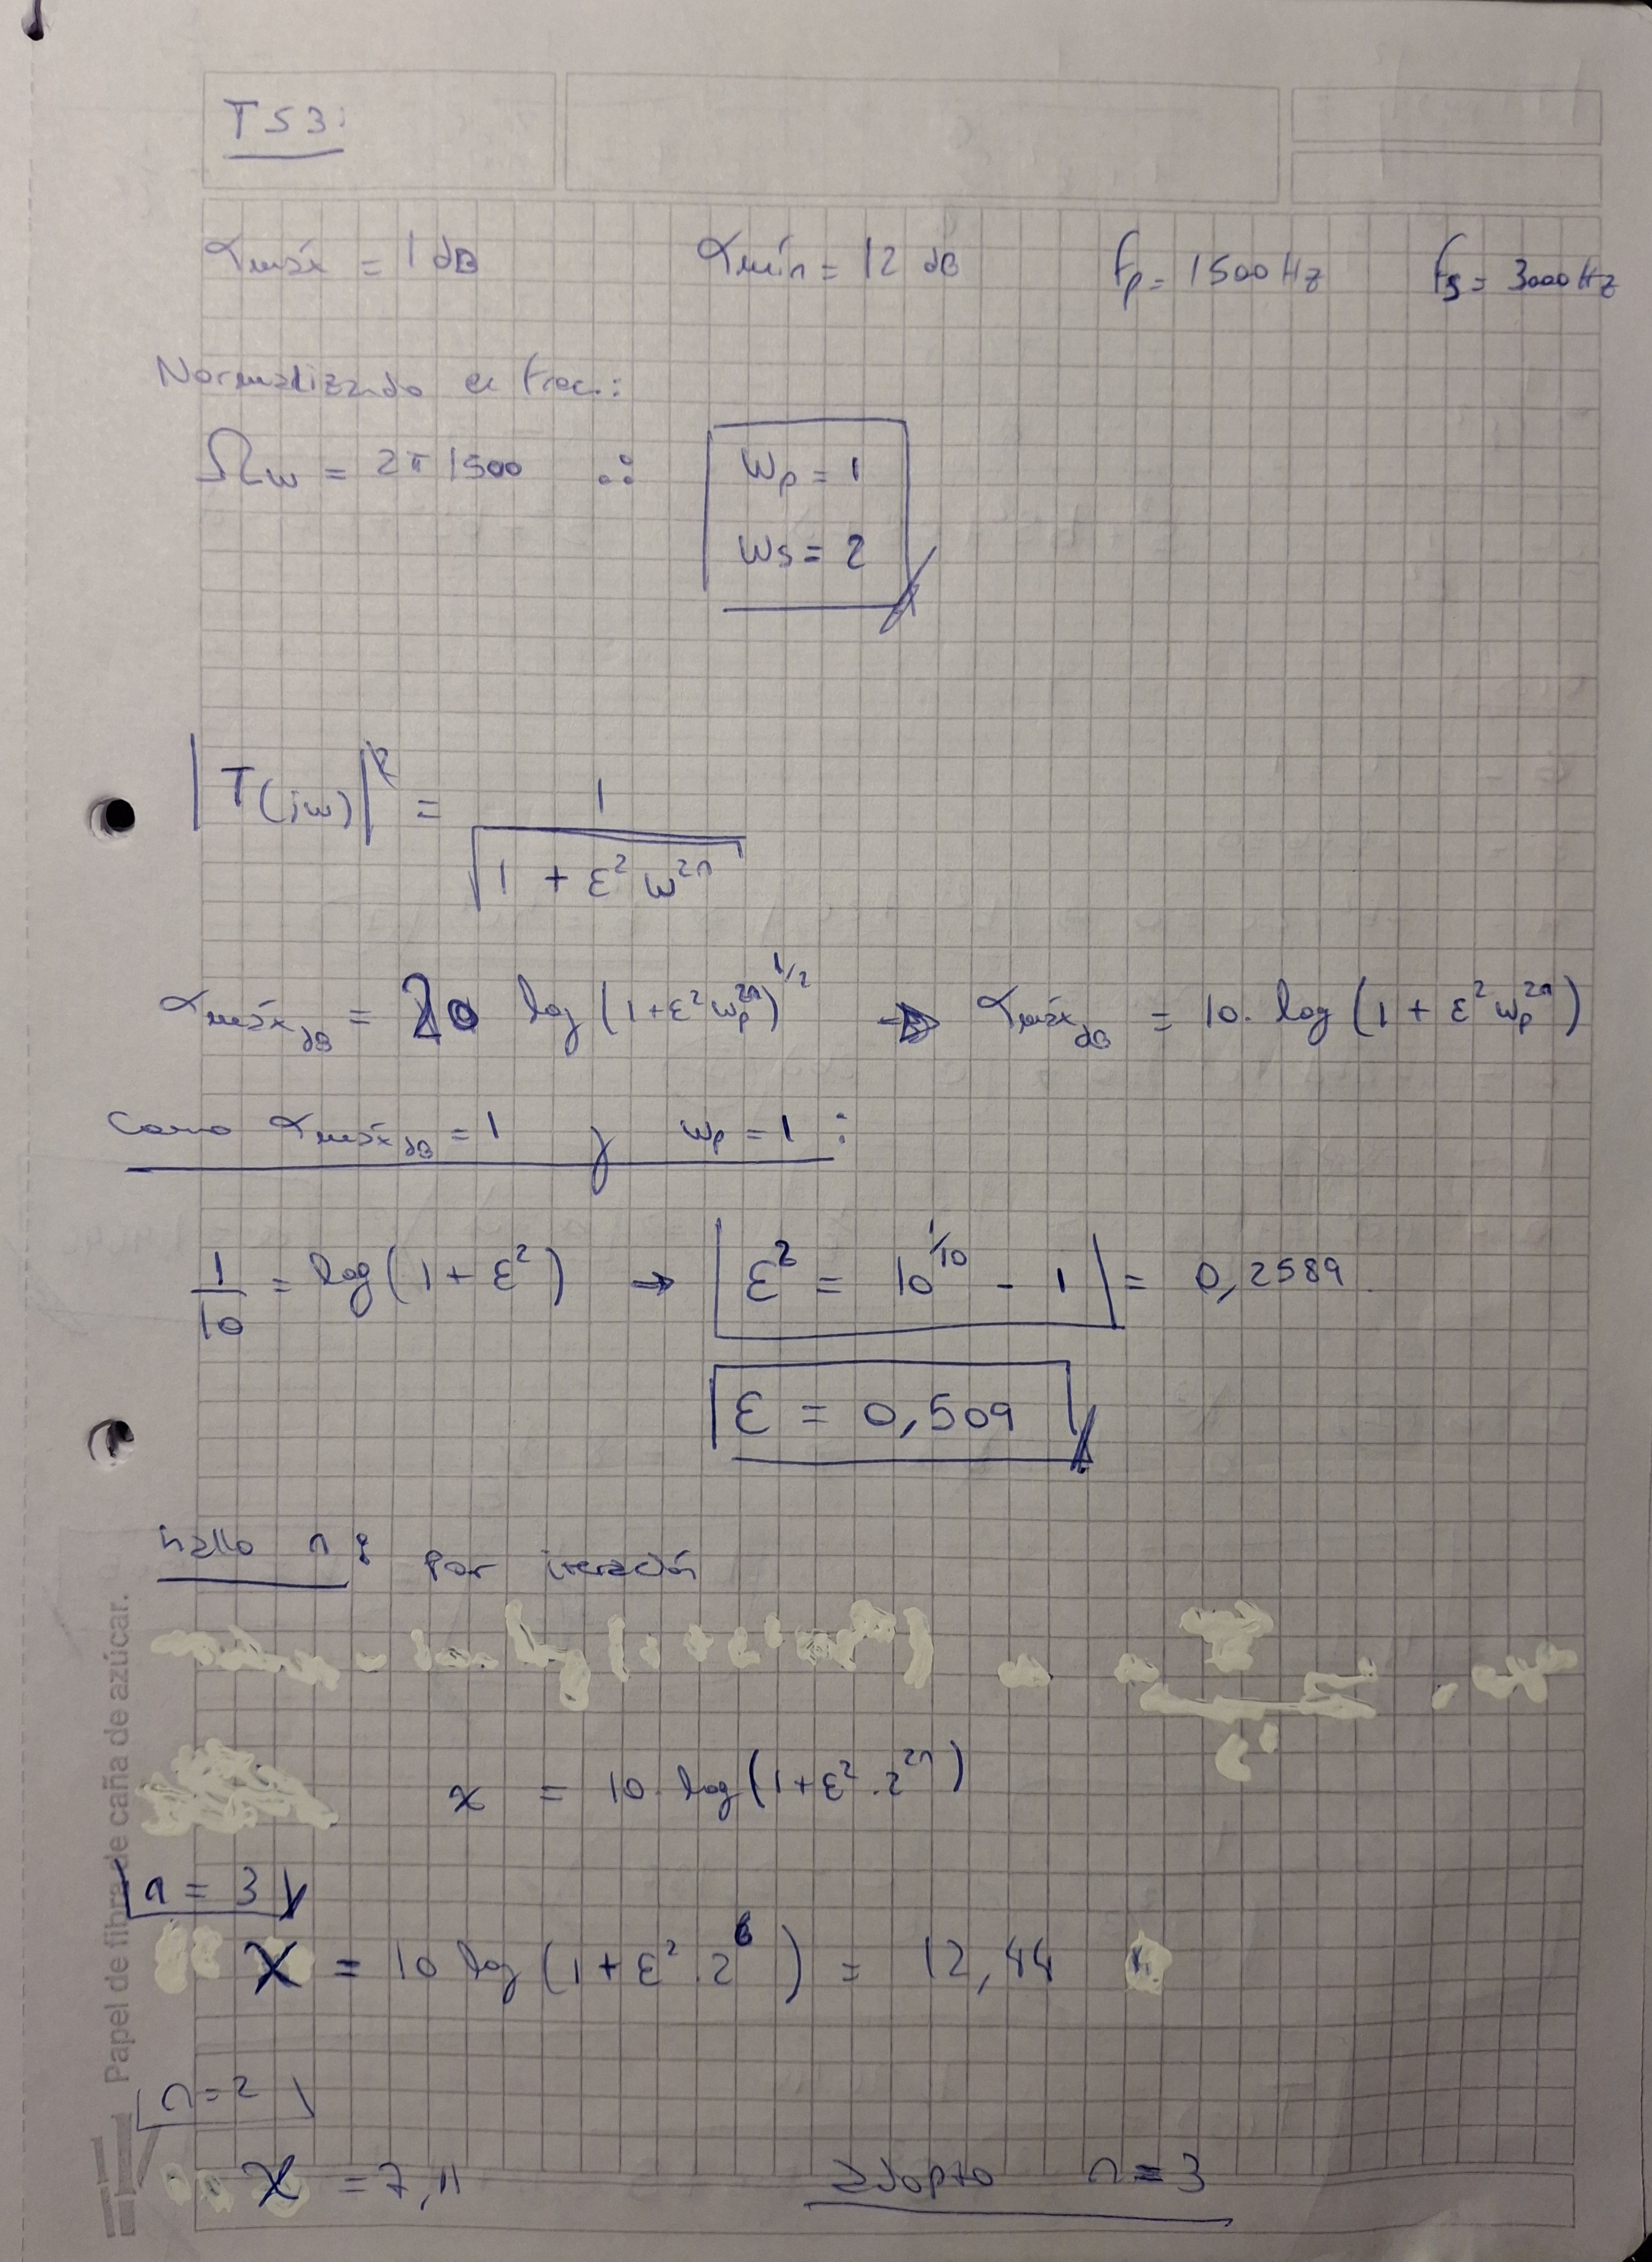 TS3:
αmáx = 1 dB αmín = 12 dB fp = 1500 Hz fs = 3000 Hz
Normalizando en frec.:
Ωw = 2π 1500 ∴ wp = 1
ws = 2
|T(jw)| = 1 / √(1 + ε² w²ⁿ)
αmáx dB = 20 log (1 + ε² wp²ⁿ)^1/2 → αmáx dB = 10. log (1 + ε² wp²ⁿ)
Como αmáx dB = 1 y wp = 1 :
1/10 = log (1 + ε²) → ε² = 10^1/10 - 1 = 0,2589
ε = 0,509
hallo n : Por iteración
x = 10. log (1 + ε² . 2²ⁿ)
n = 3
X = 10 log (1 + ε² . 2⁶) = 12,44
n = 2
X = 7,11 adopto n = 3
Papel de fibra de caña de azúcar.